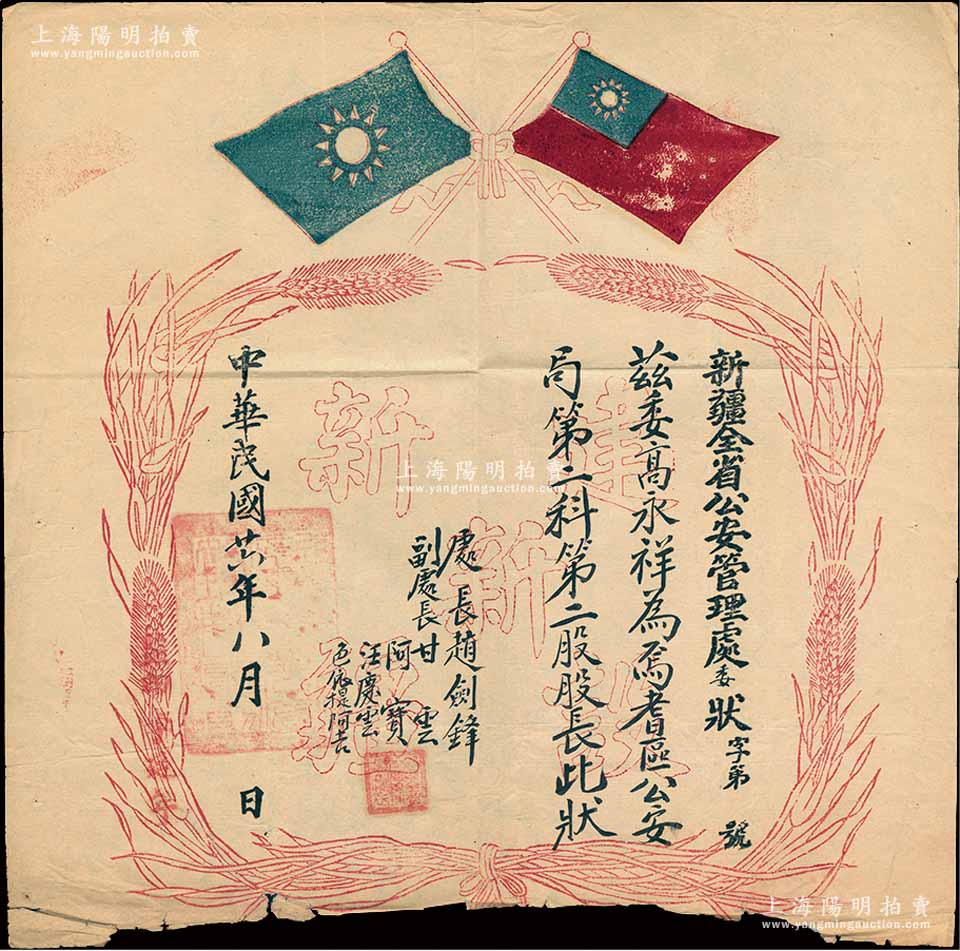 上海陽明拍賣
www.yangmingauction.com
新疆全省公安管理處委狀字第 號
茲委高永祥為焉耆區公安
局第二科第二股股長此狀
處長趙劍鋒
副處長甘雲
阿寶
汪慶雲
色依提阿吉
中華民國廿六年八月 日
建設
新
新疆
上海陽明拍賣
www.yangmingauction.com
上海陽明拍賣
www.yangmingauction.com